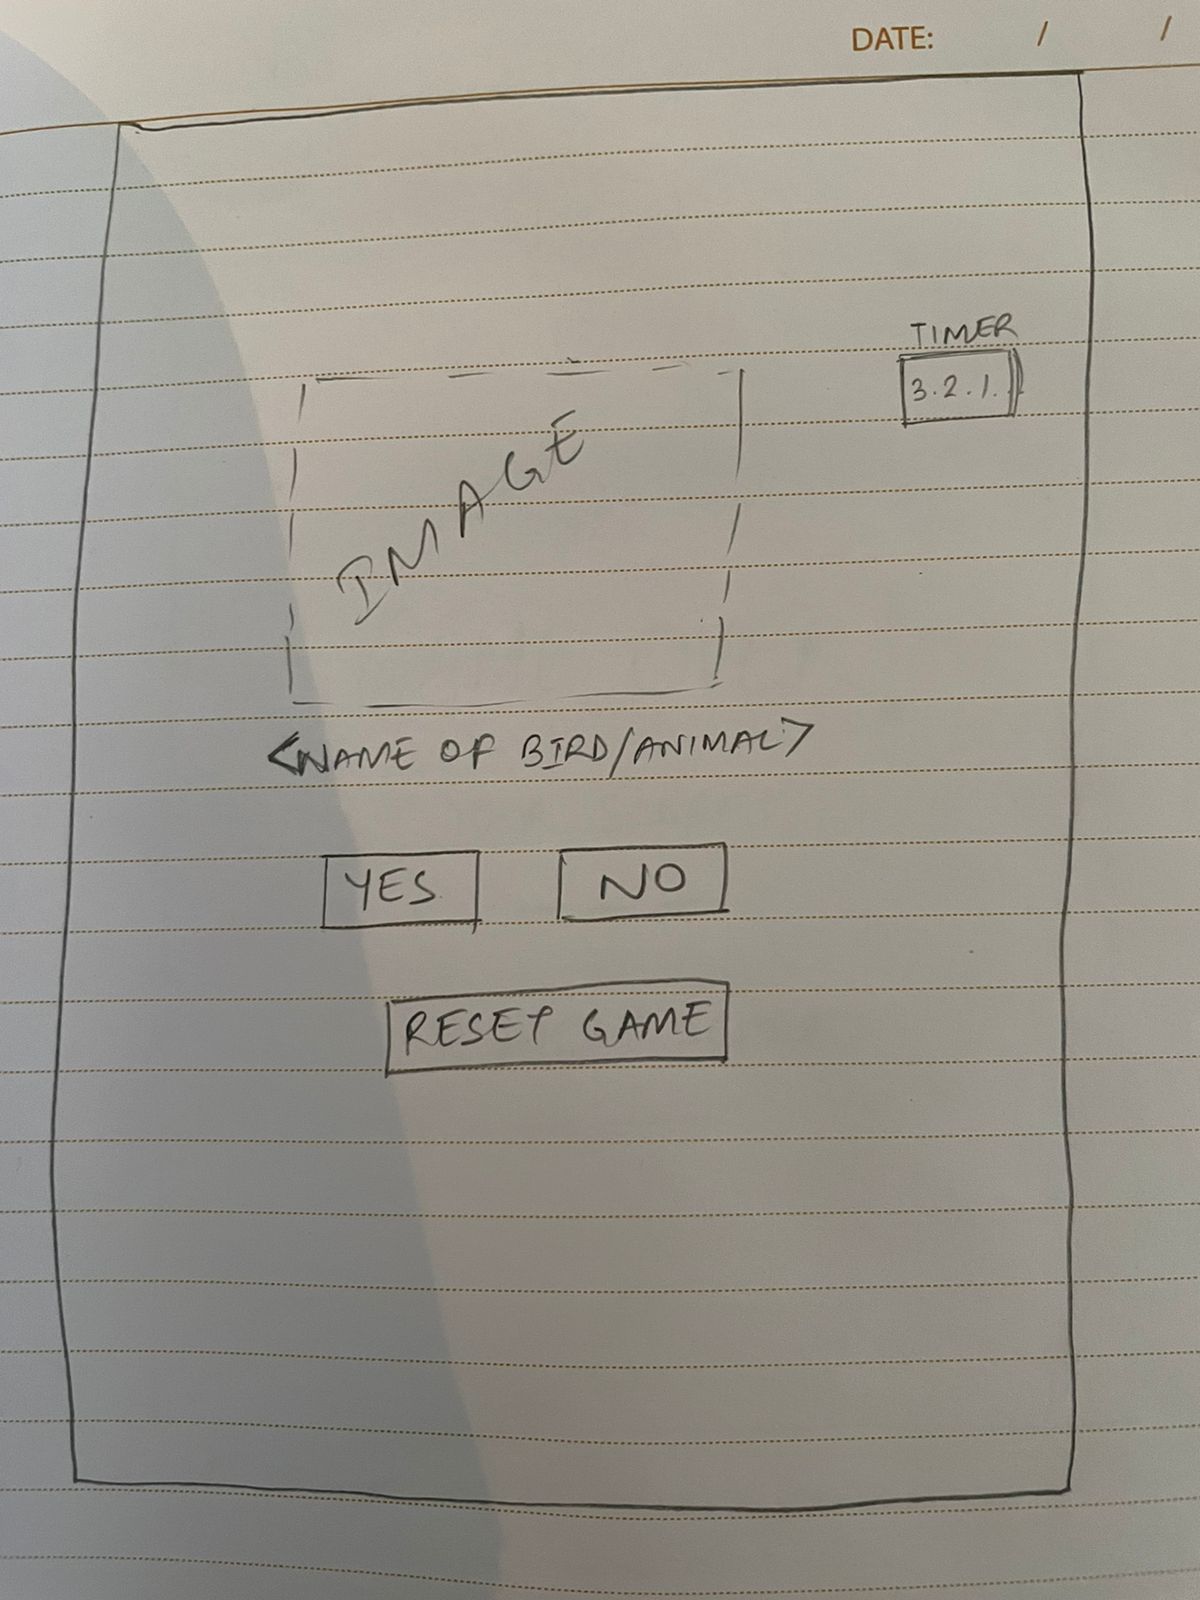 DATE: / /
TIMER
3.2.1.
IMAGE
<NAME OF BIRD/ANIMAL>
YES NO
RESET GAME